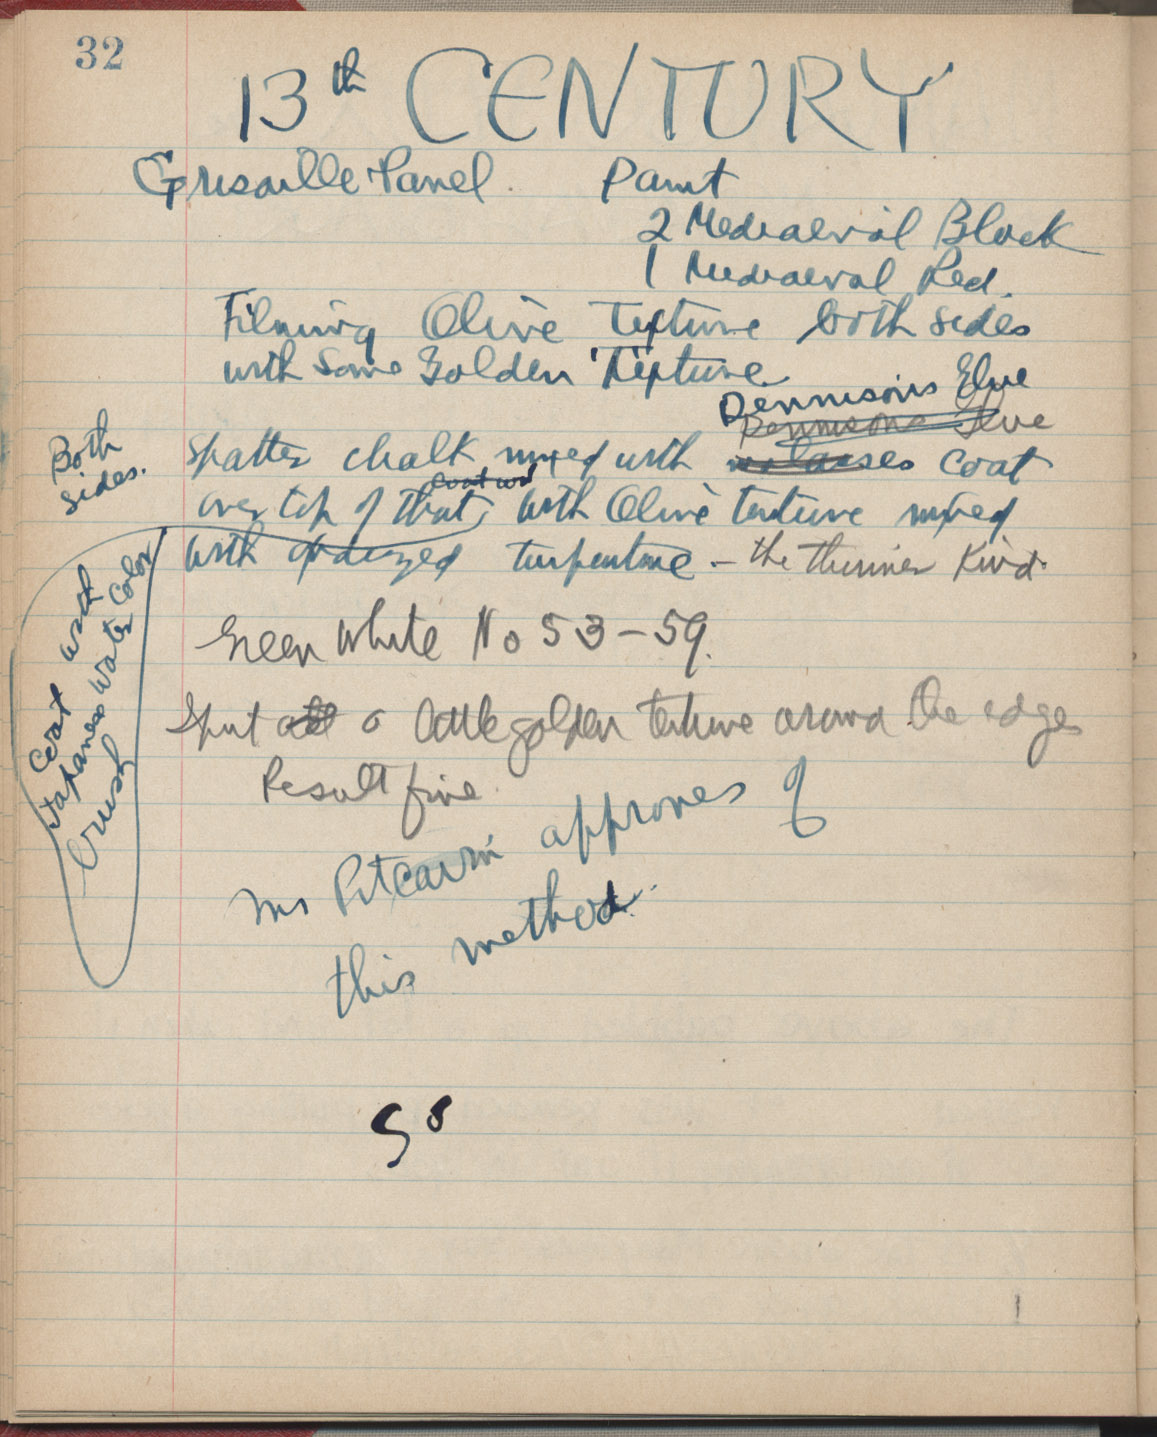 32
13th CENTURY
Grisaille Panel. Paint
2 Mediaeval Black
1 Mediaeval Red.
Filming Olive Texture both sides
with some Golden Texture.
Dennison's Glue
Dennisons Glue
Both
sides.
Spatter chalk mixed with molasses coat
coat with
over top of that, with Olive texture mixed
with oxidized turpentine – the thinner kind.
Coat with
Japanese Water Color
brush
Green White No 53 – 59.
Sput a little golden texture around the edges
Result fine.
Mr Pitcairn approves of
this method.